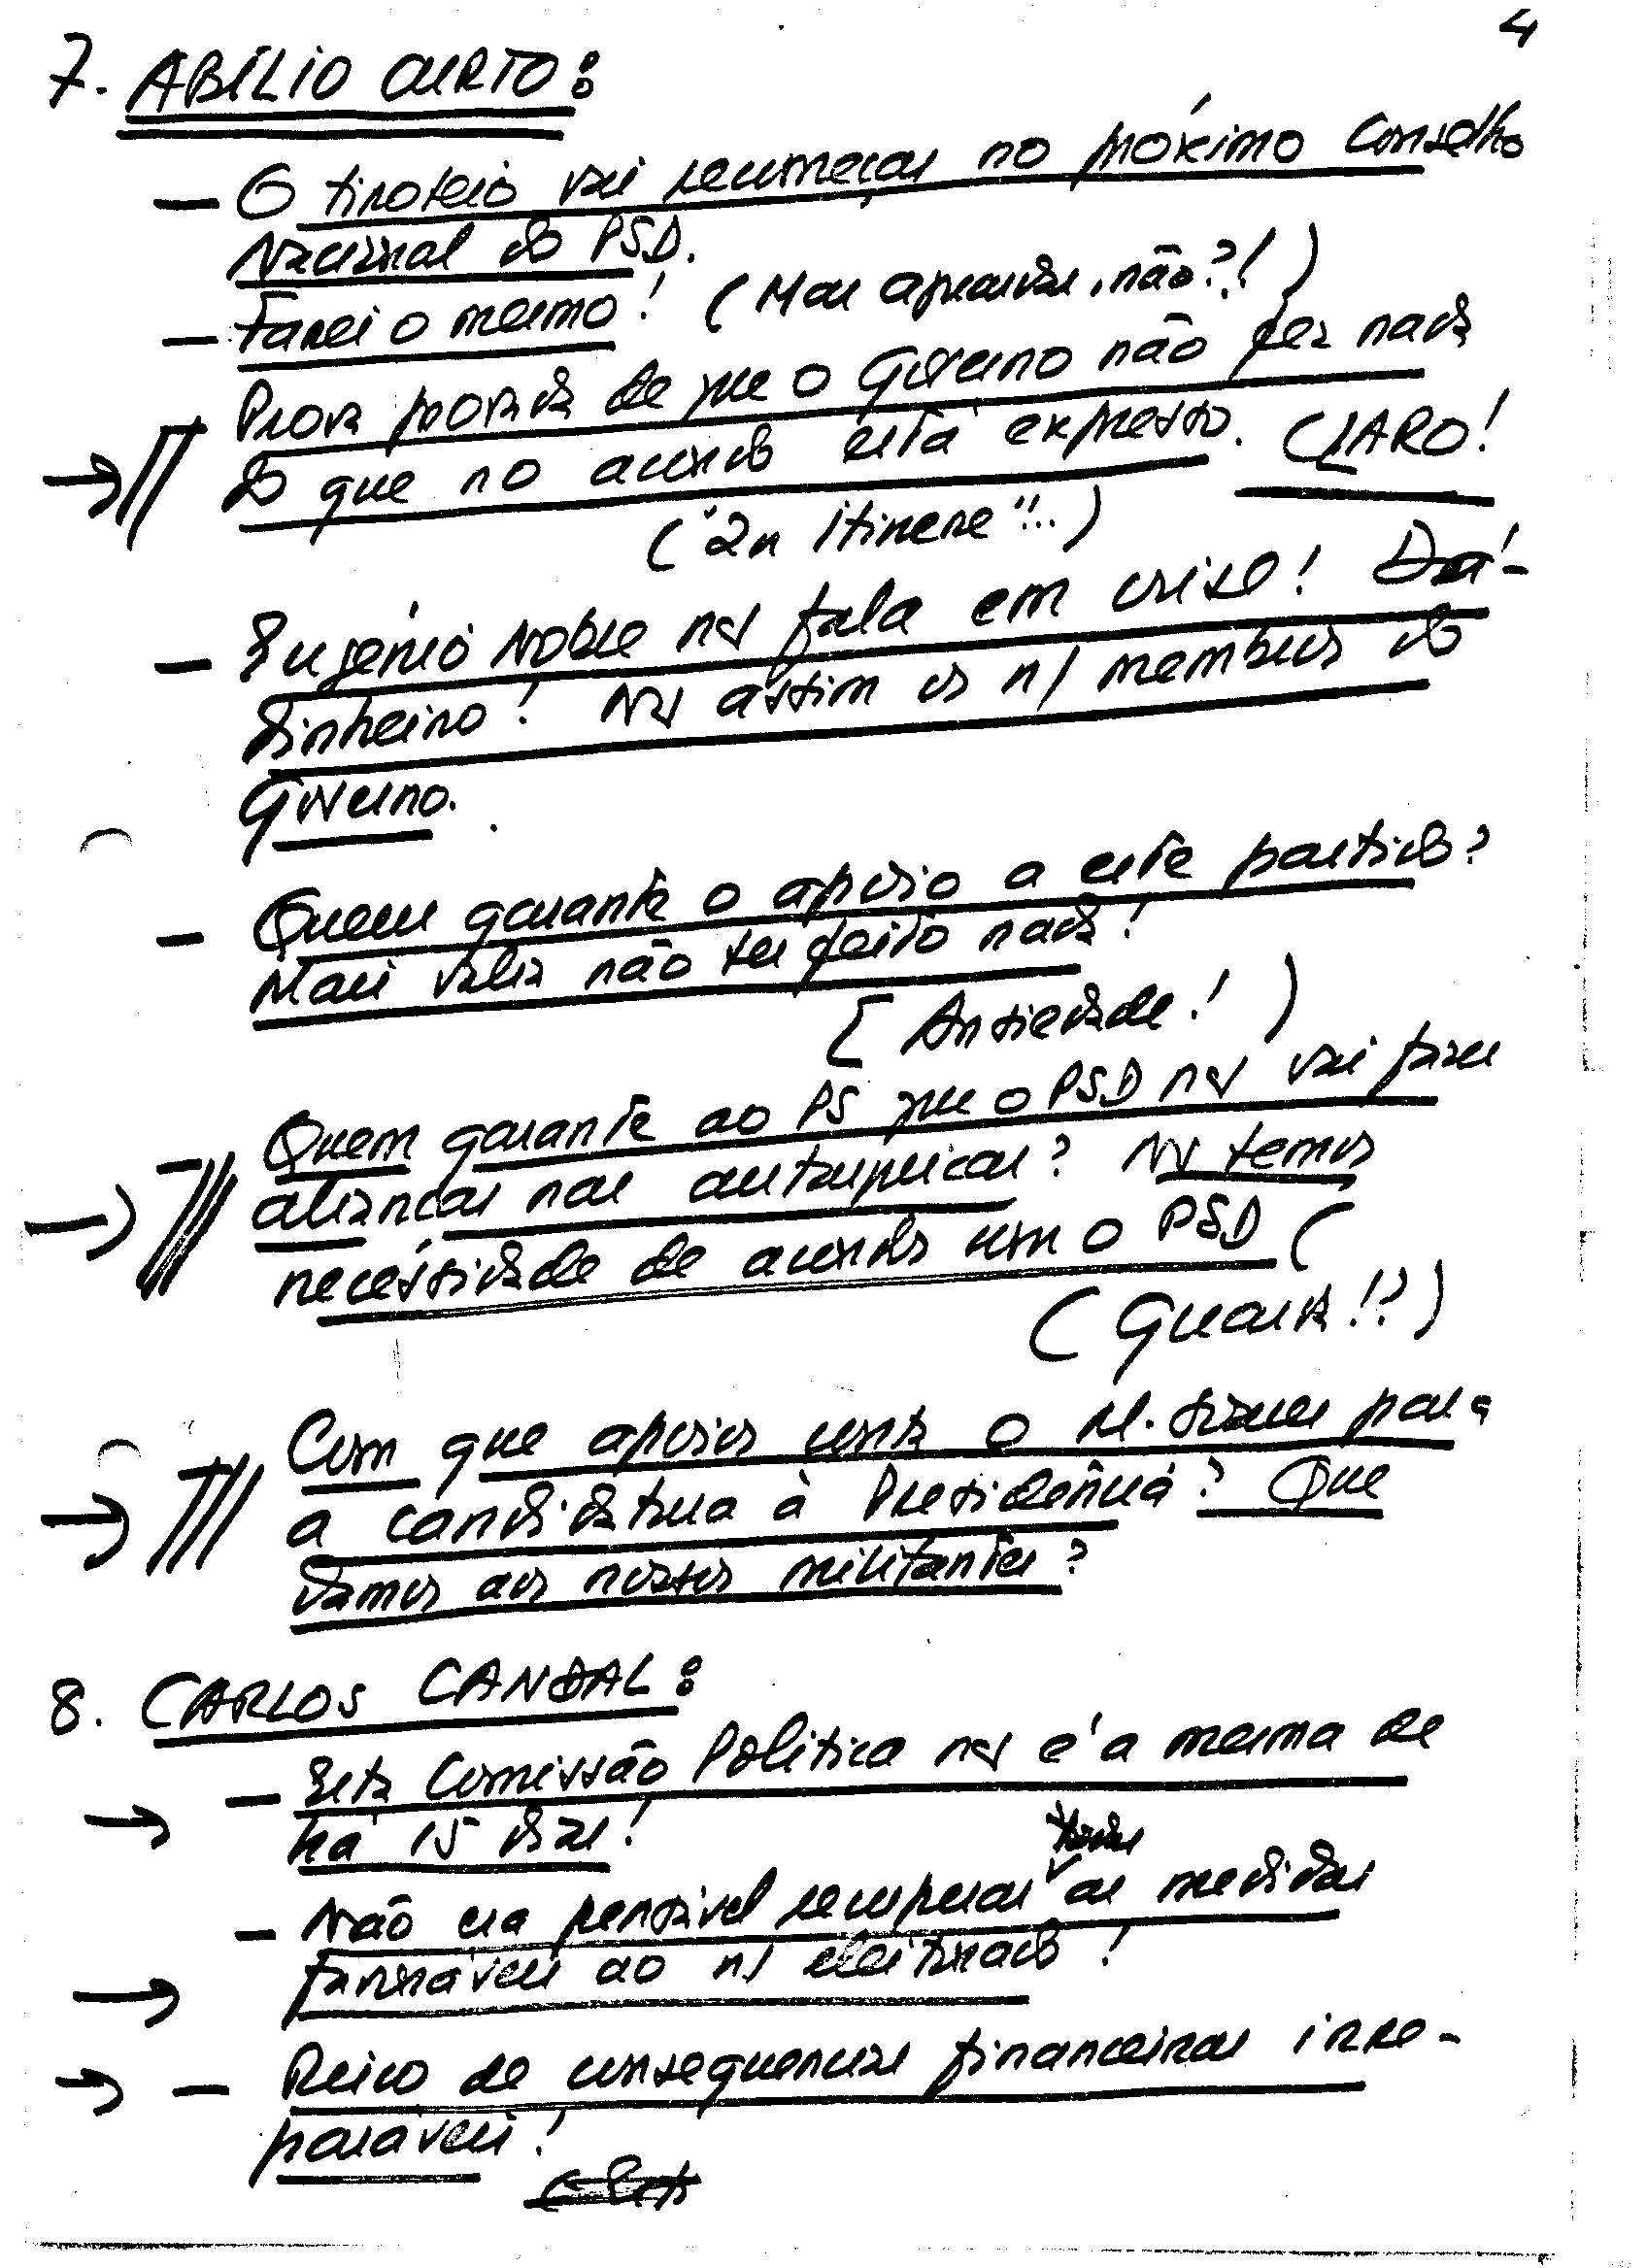 4
7. ABÍLIO CURTO:
- O tiroteio vai recomeçar no próximo Conselho
Nacional do PSD.
- Farei o mesmo! (Mas aprende, não?!)
- Prova provada de que o Governo não fez nada
do que no acordo está expresso. CLARO!
("In itinere"...)
- Eugénio Nobre nos fala em crise! Dá-
dinheiro! Nos assim os n/ membros do
Governo.
- Quem garante o apoio a este partido?
Mais valia não ter feito nada!
[Ansiedade!)
- Quem garante ao PS que o PSD não vai fazer
alianças nas autárquicas? Não temos
necessidade de acordos com o PSD (
(Guarda!?)
- Com que apoios conta o M. Soares para
a candidatura à Presidência? Que
damos aos nossos militantes?
8. CARLOS CANDAL:
- Esta Comissão Política não é a mesma de
há 15 dias!
todas
- Não era pensável recuperar as medidas
favoráveis ao n/ eleitorado!
- Risco de consequencias financeiras irre-
paráveis!